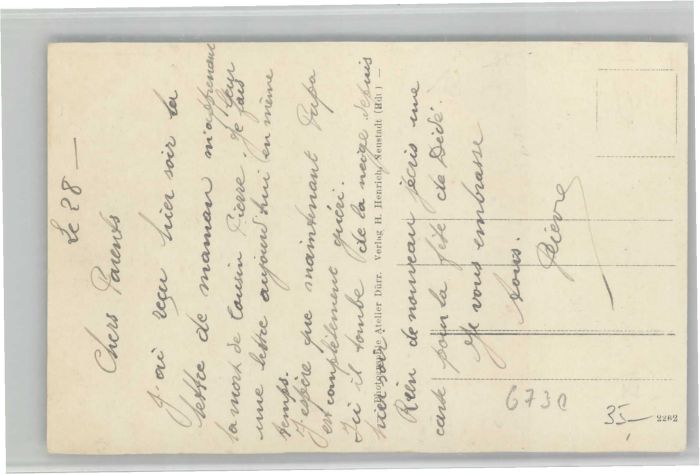 Le 28 —
Chers Parents
J'ai reçu hier soir la
lettre de maman m'apprenant
la mort de Cousin Pierre. Je leur fais
une lettre aujourd'hui en même
temps.
J'espère que maintenant Papa
est complètement guéri.
Ici il tombe de la neige depuis
hier soir.
Rien de nouveau j'écris une
carte pour la fête de Dédé.
Je vous embrasse
tous.
Pierre
Photographie Atelier Dürr. Verlag H. Henrich, Neustadt (Hdt.)
6730
35,—
2262